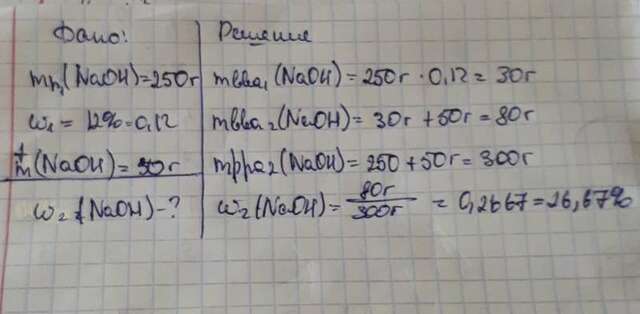 Дано:
mр₁(NaOH)=250г
ω₁ = 12%=0,12
m(NaOH) = 50г
ω₂ (NaOH)-?
Решение
mвва₁(NaOH) = 250г · 0,12 = 30г
mвва₂(NaOH) = 30г + 50г = 80г
mрра₂(NaOH) = 250 + 50г = 300г
ω₂(NaOH) = 80г / 300г = 0,2667 = 26,67%